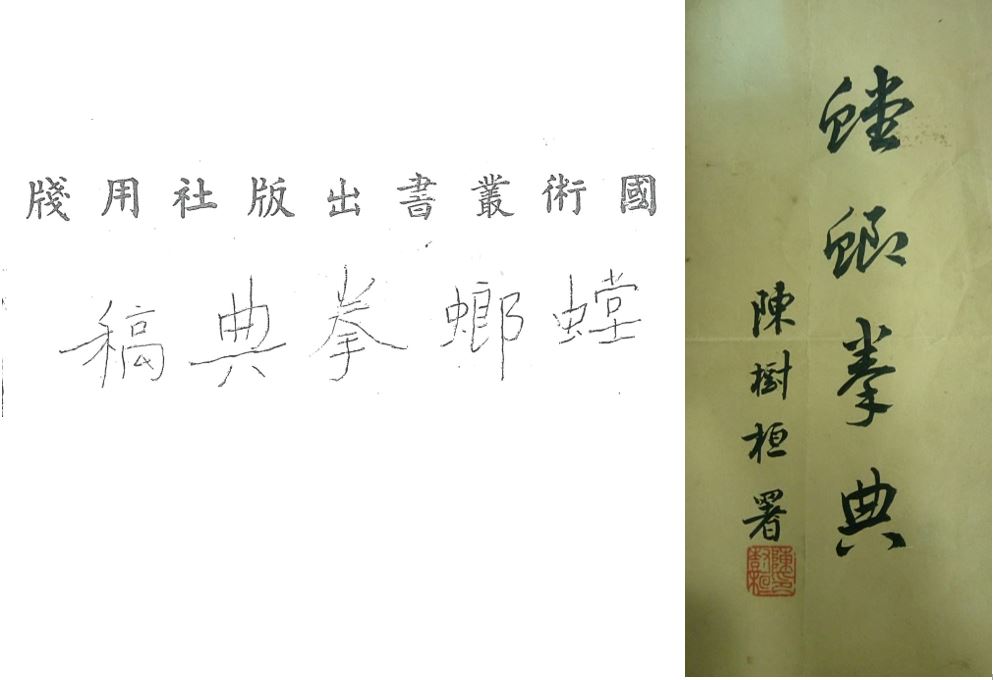 國術叢書出版社用牋
螳螂拳典稿
螳螂拳典
陳樹桓署